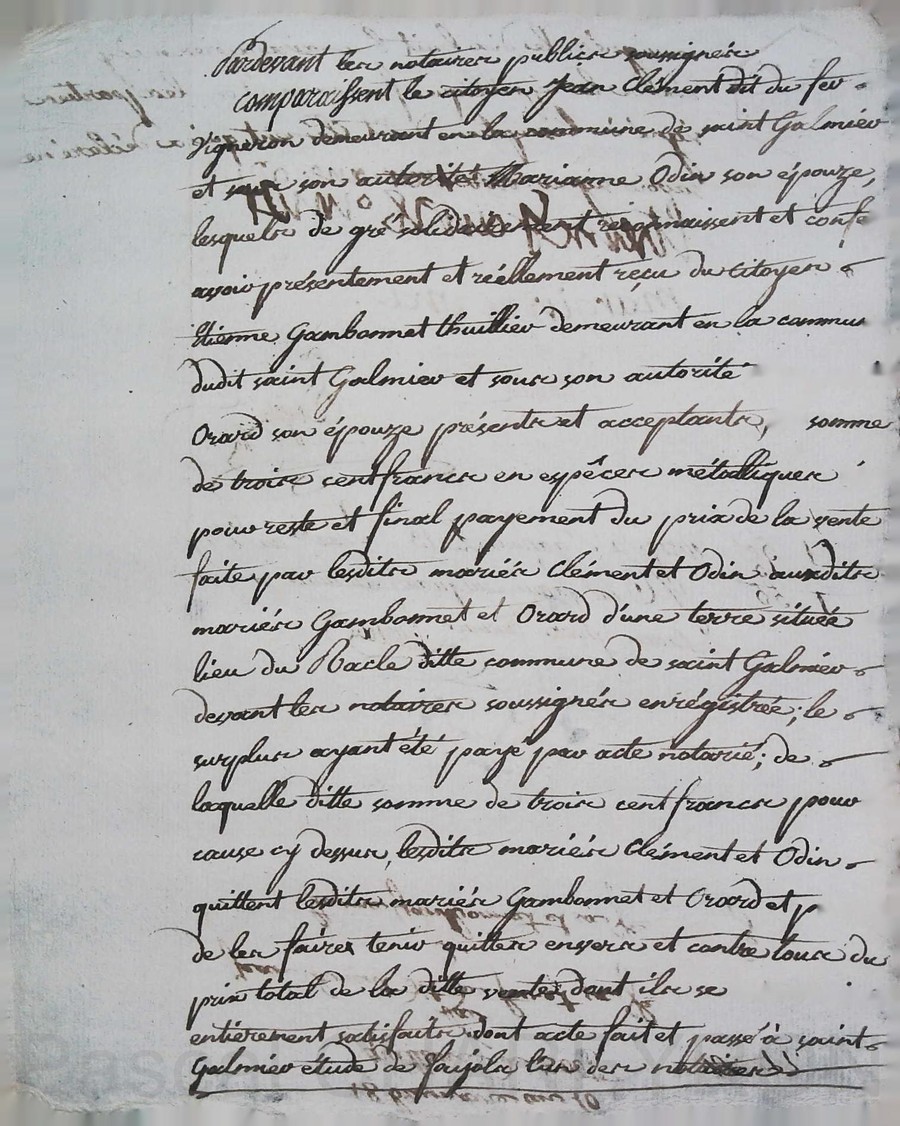 Pardevant les notaires publics soussignés
comparaissent le citoyen Jean Clément dit du fev
vigneron demeurant en la commune de saint Galmier
et sous son autorité Marianne Odin son épouze,
lesquels de gré solidairement reconnaissent et confe
avoir présentement et réellement reçu du citoyen
Etienne Gambonnet thuillier demeurant en la commu
dudit saint Galmier et sous son autorité
Orard son épouze présents et acceptants, somme
de trois cent francs en espêces métalliques
pour reste et final payement du prix de la vente
faite par lesdits mariés Clément et Odin auxdits
mariés Gambonnet et Orard d'une terre située
lieu du Racle ditte commune de saint Galmier
devant les notaires soussignés enrégistrée; le
surplus ayant été payé par acte notarié; de
laquelle ditte somme de trois cent francs pour
cause cy dessus, lesdits mariés Clément et Odin
quittent lesdits mariés Gambonnet et Orard et p
de les faires tenir quittes envers et contre tous du
prix total de la ditte vente, dont ils se
entiérement satisfaits dont acte fait et passé à saint
Galmier étude de Fajols l'un des notaires